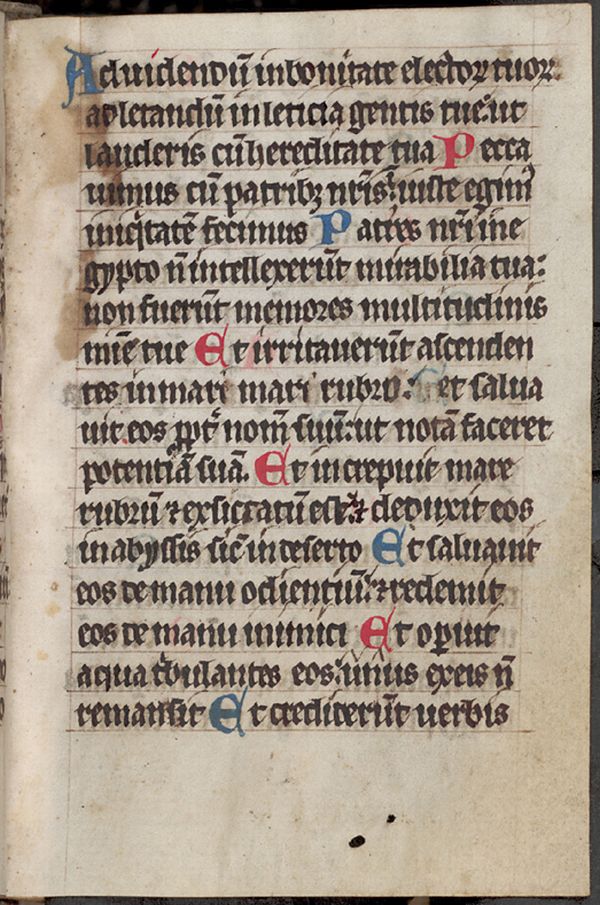 Ad uidendū in bonitate electoꝝ tuoꝝ:
ad letandū in leticia gentis tue: ut
lauderis cū hereditate tua Pecca
uimus cū patribꝫ nr̄is: iuste egimꝰ
iniq̇tatē fecimus Patres nr̄i in e
gypto n̄ intellexerūt mirabilia tua:
non fuerūt memores multitudinis
mīe tue Et irritauerūt ascenden
tes in mari mari rubro: et salua
uit eos ꝓpt̄ nom̄ suū: ut notā faceret
potentiā suā. Et increpuit mare
rubrū ⁊ exsiccatū est: ⁊ deduxit eos
in abyssis sic̄ in deserto Et saluauit
eos de manu odientiū: ⁊ redemit
eos de manu inimici Et oꝑuit
aqua tͥbulantes eos: unus ex eis n̄
remansit Et crediderūt uerbis